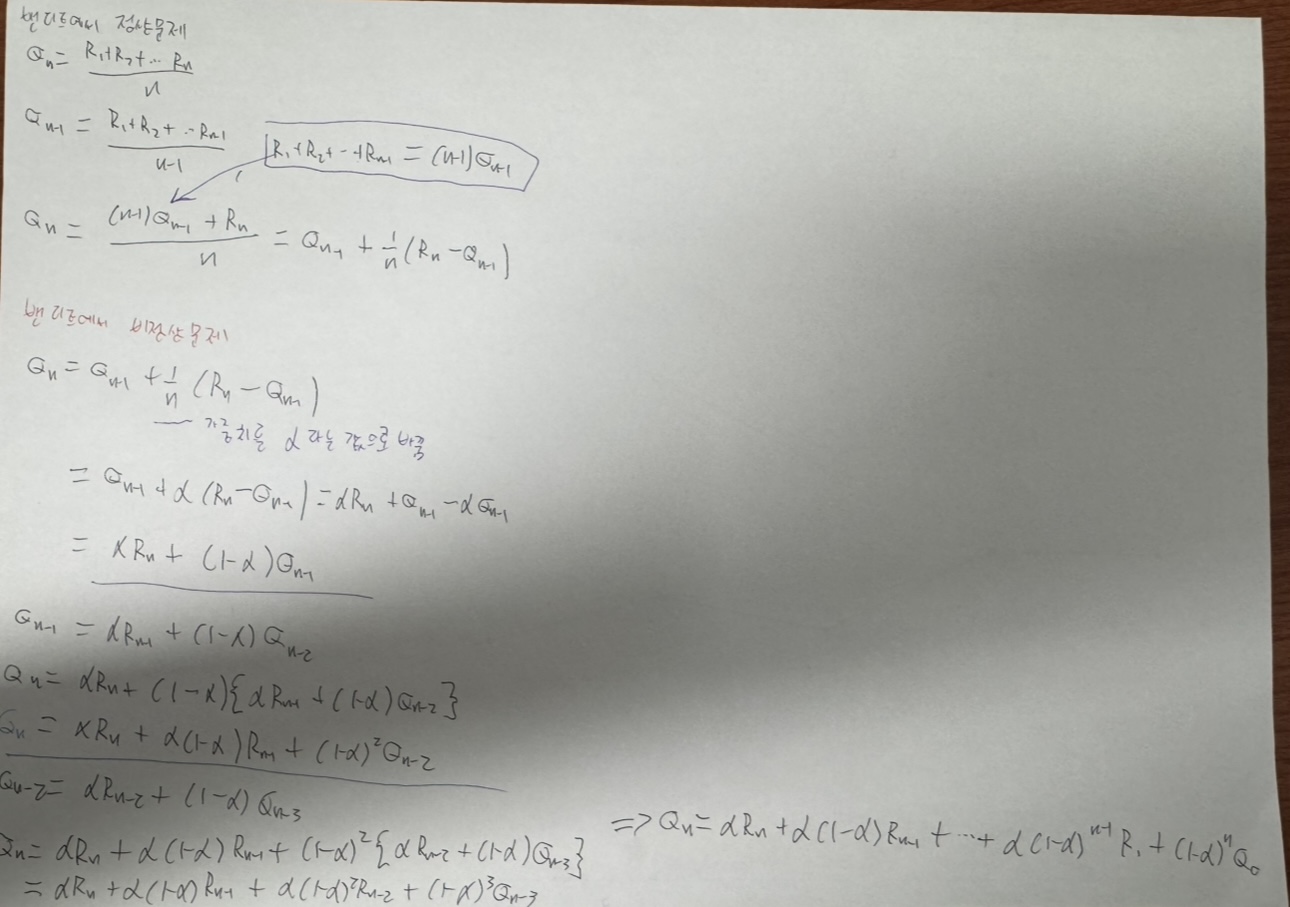 밴디트에서 정상문제
Qn = (R₁+R₂+… Rn)/n
Qn-1 = (R₁+R₂+ … Rn-1)/(n-1)
R₁+R₂+ … +Rn-1 = (n-1)Qn-1
Qn = ((n-1)Qn-1 + Rn)/n = Qn-1 + 1/n (Rn - Qn-1)
밴디트에서 비정상문제
Qn = Qn-1 + 1/n (Rn - Qn-1)
가중치를 α 라는 값으로 바꿈
= Qn-1 + α (Rn - Qn-1) = αRn + Qn-1 - αQn-1
= αRn + (1-α)Qn-1
Qn-1 = αRn-1 + (1-α)Qn-2
Qn = αRn + (1-α){αRn-1 + (1-α)Qn-2}
Qn = αRn + α(1-α)Rn-1 + (1-α)²Qn-2
Qn-2 = αRn-2 + (1-α)Qn-3
Qn = αRn + α(1-α)Rn-1 + (1-α)²{αRn-2 + (1-α)Qn-3}
= αRn + α(1-α)Rn-1 + α(1-α)²Rn-2 + (1-α)³Qn-3
=> Qn = αRn + α(1-α)Rn-1 + … + α(1-α)ⁿ⁻¹R₁ + (1-α)ⁿQ₀